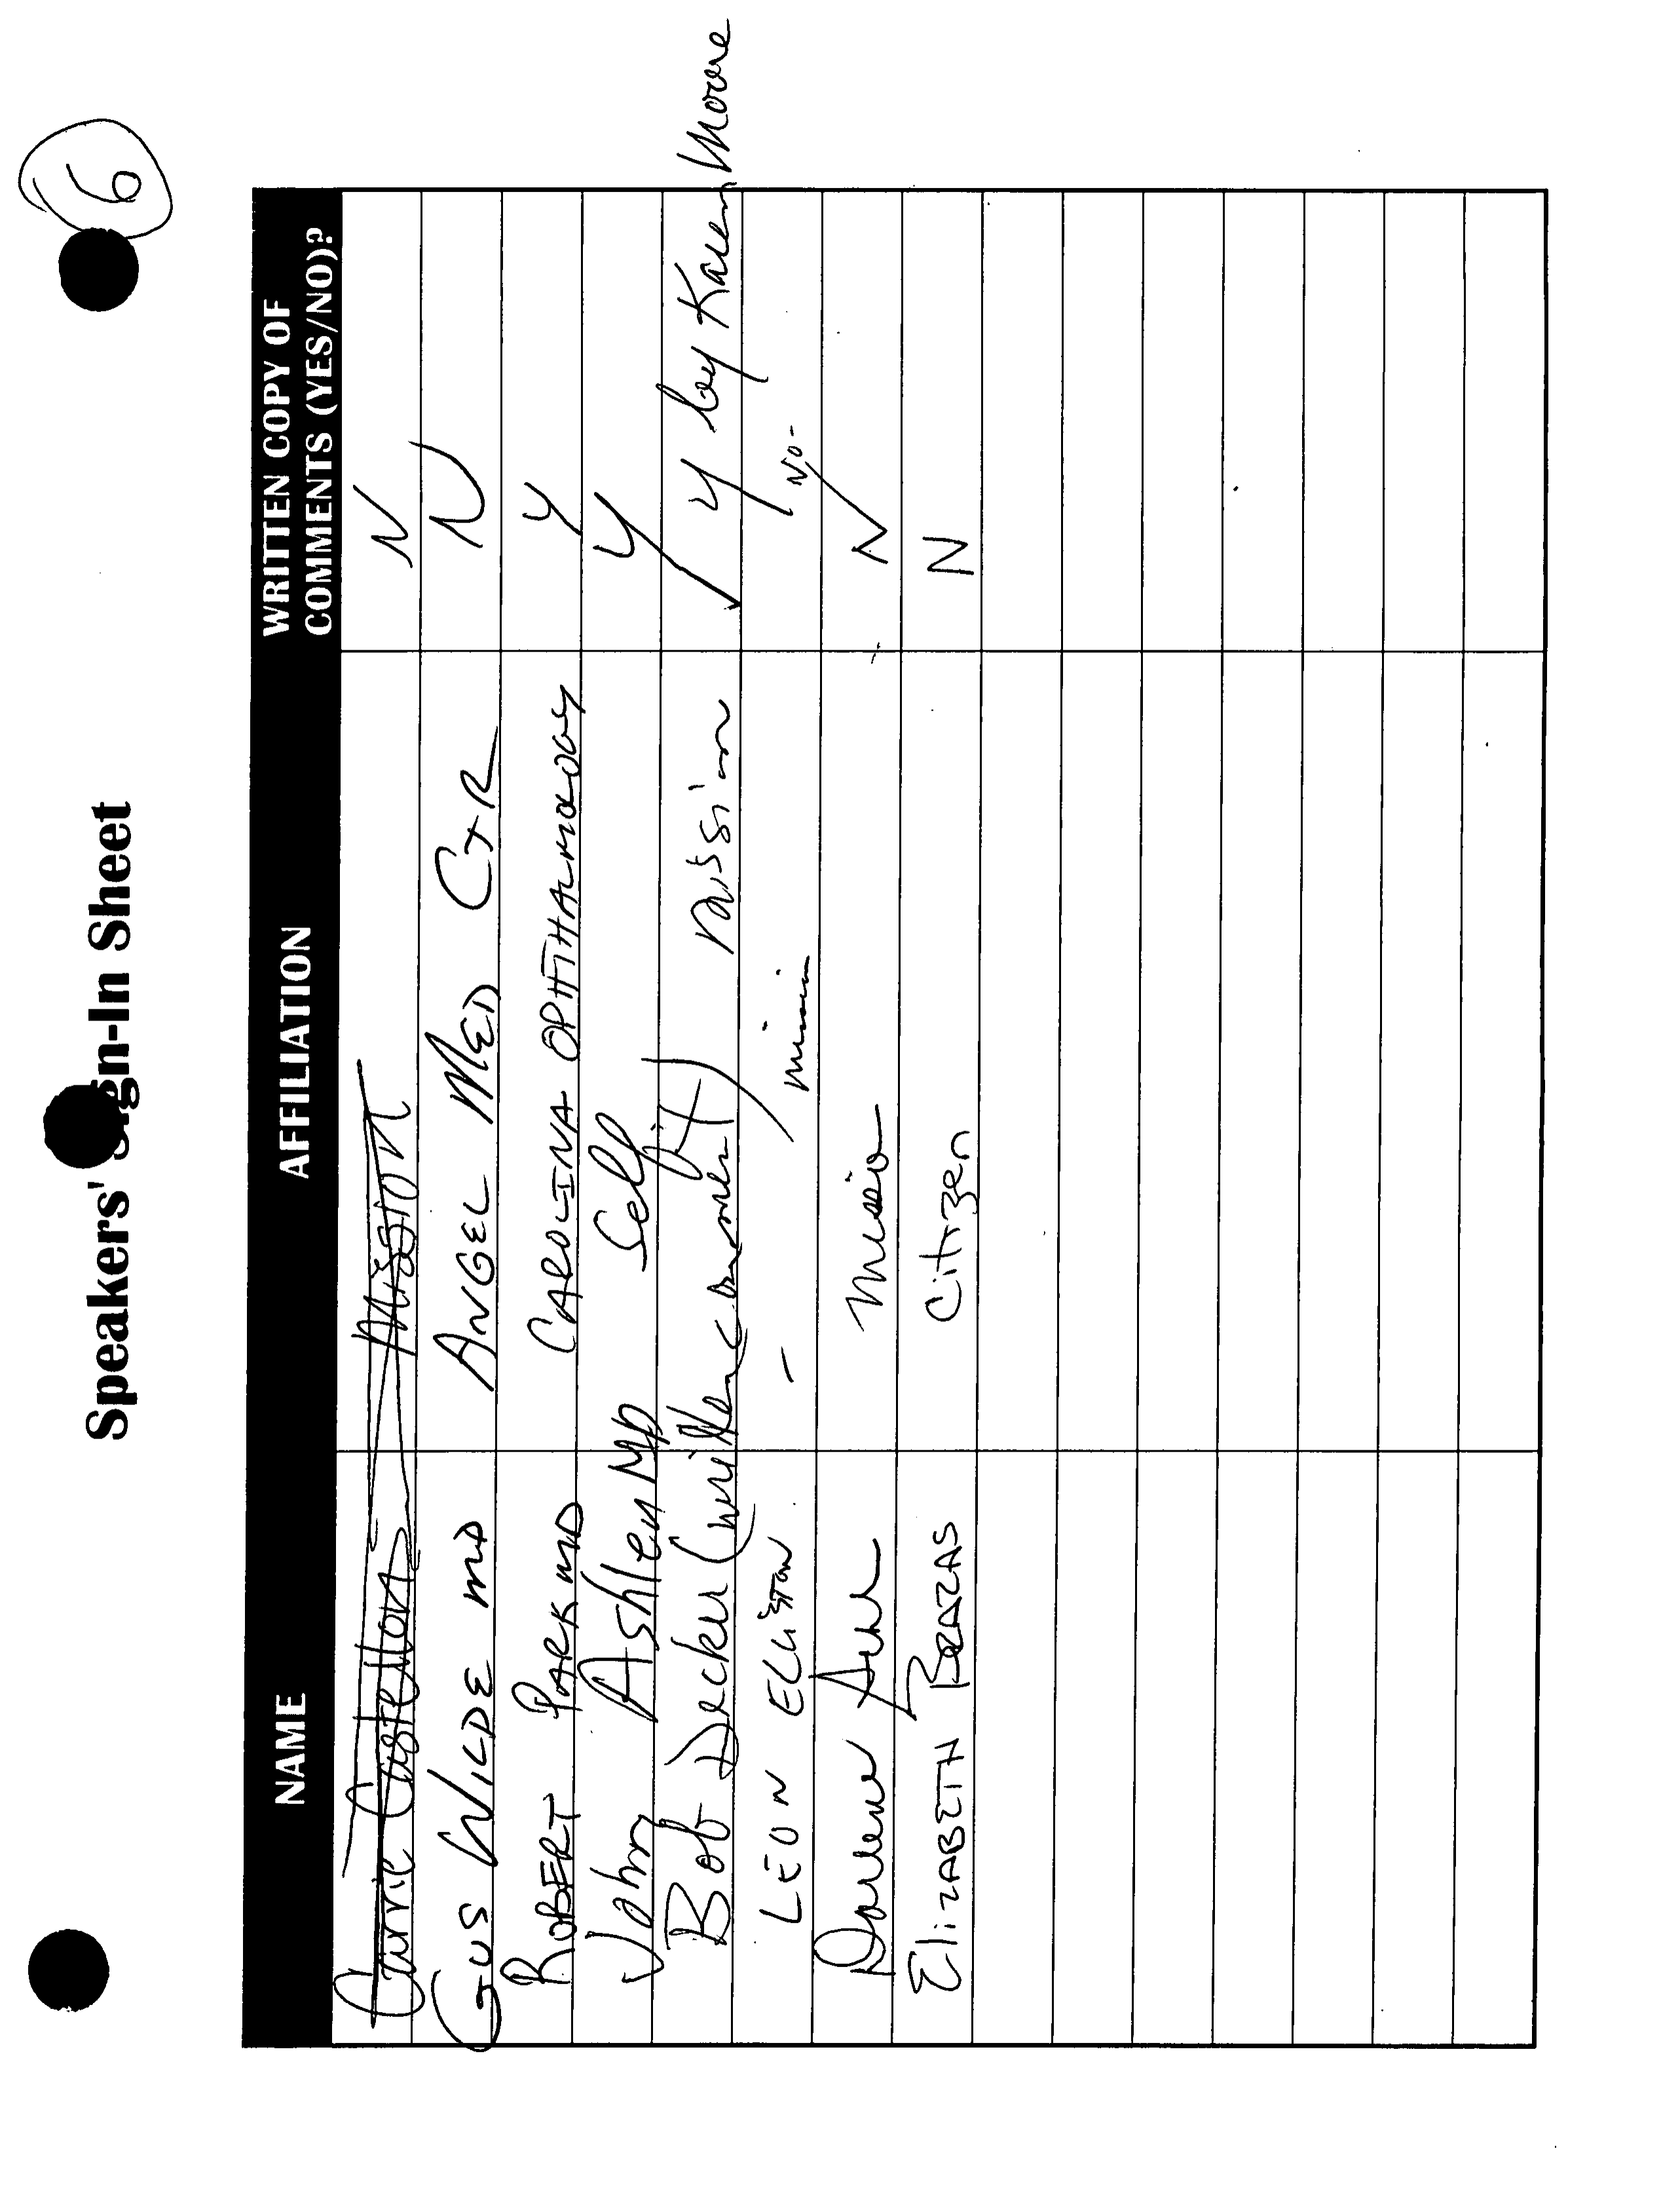 6
Speakers' Sign-In Sheet
NAME AFFILIATION WRITTEN COPY OF COMMENTS (YES/NO)?
Carrie Castellon Mission N
GUS WILDE MD ANGEL MED CTR N
ROBERT PARK MD CAROLINA OPHTHALMOLOGY Y
John Ashley MD Self Y
Bob Decker (written comment) Mission Y by Karen Moore
LEON ELLISTON - mission NO-
Darlene Mission N
ElizABETH BRAZAS Citizen N